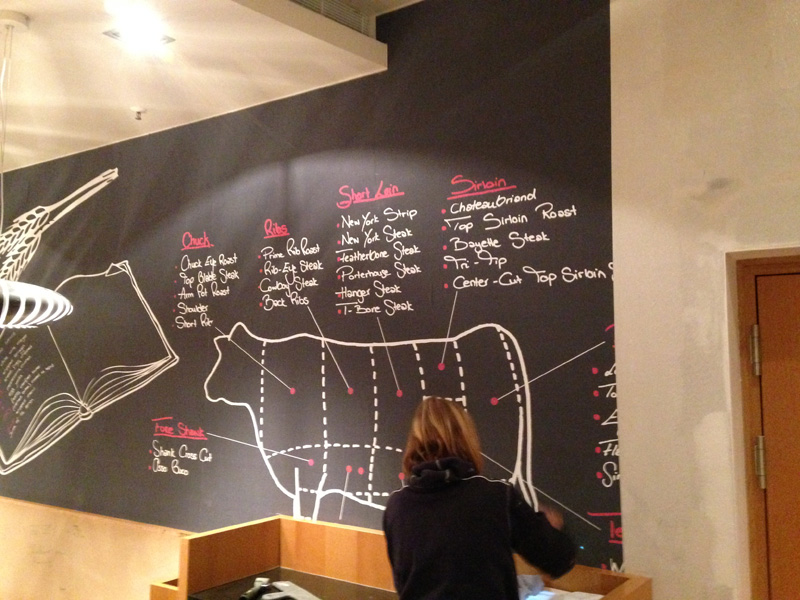 Chuck
Chuck Eye Roast
Top Blade Steak
Arm Pot Roast
Shoulder
Short Rib
Ribs
Prime Rib Roast
Rib-Eye Steak
Cowboy Steak
Back Ribs
Short Loin
New York Strip
New York Steak
Featherbone Steak
Porterhouse Steak
Hanger Steak
T-Bone Steak
Sirloin
Chateaubriand
Top Sirloin Roast
Bavette Steak
Tri-Tip
Center-Cut Top Sirloin S
Fore Shank
Shank Cross Cut
Osso Buco